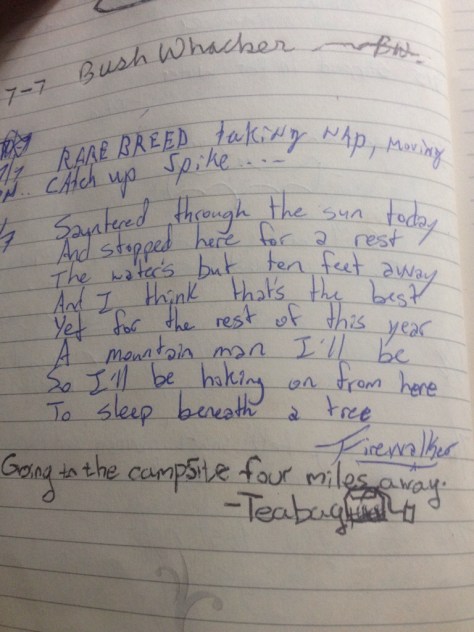 7-7 Bush Whacker BW.
RARE BREED taking NAp, moving
7/7 CAtch up Spike....
Sauntered through the sun today
And stopped here for a rest
The water's but ten feet away
And I think that's the best
Yet for the rest of this year
A mountain man I'll be
So I'll be hiking on from here
To sleep beneath a tree
Firewalker
Going to the campsite four miles away.
-Teabag